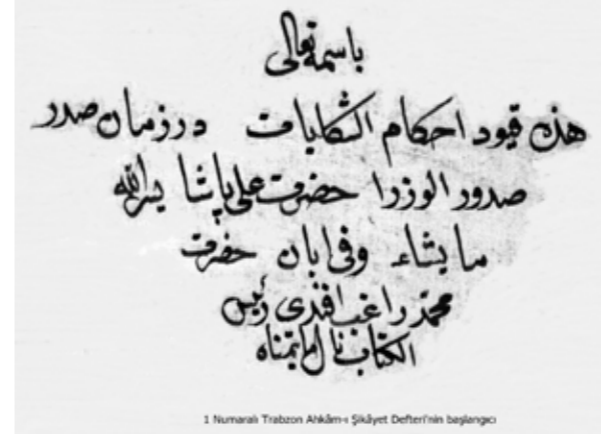 باسمه تعالى
هذه قيود احكام الشكايات در زمان صدر
صدور الوزرا حضرت على پاشا يسر الله
ما يشاء وفى ابان حضرت
محمد راغب افندى رئيس
الكتاب نال ما يتمناه
1 Numaralı Trabzon Ahkâm-ı Şikâyet Defteri'nin başlangıcı